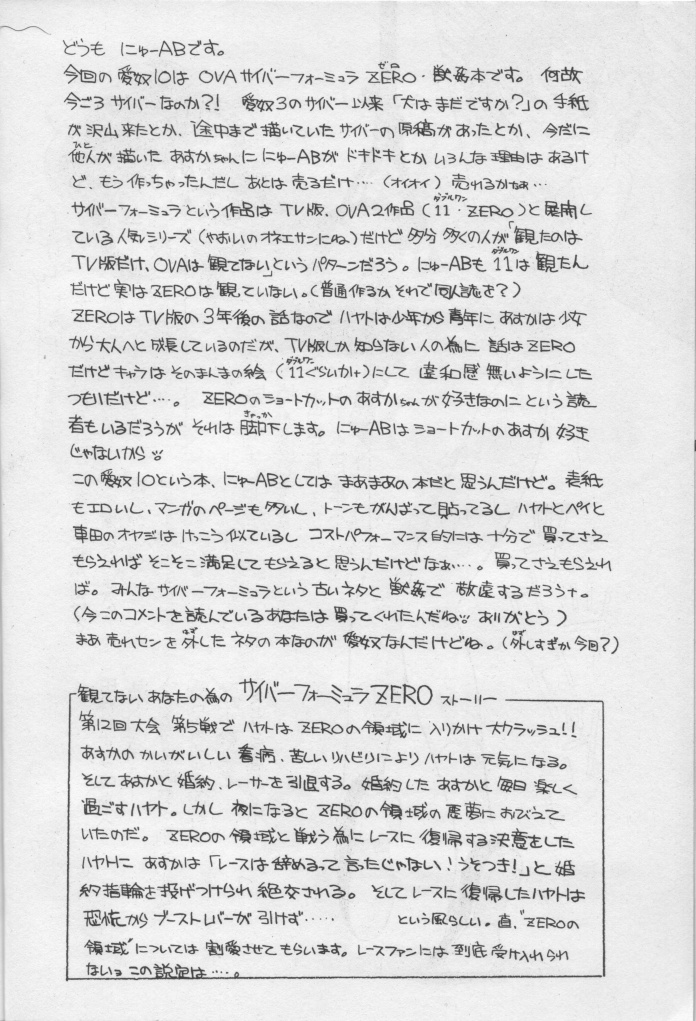 どうも にゅーABです。
今回の愛奴10は OVAサイバーフォーミュラ ZERO・獣姦本です。 何故
今ごろサイバーなのか?! 愛奴3のサイバー以来「犬はまだですか?」の手紙
が沢山来たとか、途中まで描いていたサイバーの原稿があったとか、今だに
他人が描いた あすかちゃんに にゅーABが ドキドキとか いろんな理由はあるけ
ど、もう作っちゃったんだし あとは売るだけ‥‥ (オイオイ) 売れるかなぁ…
サイバーフォーミュラという作品は TV版、OVA2作品 (11・ZERO)と展開し
ている人気シリーズ (やおいのオネエサンにね)だけど 多分 多くの人が「観たのは
TV版だけ、OVAは観てない」という パターンだろう。にゅーABも 11は 観たん
だけど実はZEROは観ていない。(普通作るか それで同人誌を?)
ZEROはTV版の3年後の話なので ハヤトは少年から青年に あすかは 少女
から大人へと成長しているのだが、TV版しか知らない人の為に 話はZERO
だけどキャラはそのまんまの絵 (11ぐらいか)にして 違和感無いようにした
つもりだけど‥‥。 ZEROのショートカットのあすかちゃんが好きなのに という読
者もいるだろうが それは却下します。にゅーABはショートカットのあすか 好き
じゃないから
この愛奴10という本、にゅーABとしては まあまあの本だと思うんだけど。表紙
もエロいし、マンガのページも多いし、トーンもがんばって貼ってるし ハヤトとペイと
車田のオヤジは けっこう似ているし コストパフォーマンス的には十分で 買ってさえ
もらえれば そこそこ満足してもらえると 思うんだけどなぁ‥‥。買ってさえもらえれ
ば。 みんな サイバーフォーミュラという古いネタと 獣姦で 敬遠するだろナ。
(今このコメントを読んでいるあなたは買ってくれたんだね ありがとう)
まあ 売れセンを外した ネタの本なのが 愛奴なんだけどね。(外しすぎか 今回?)
観てないあなたの為の サイバーフォーミュラ ZERO ストーリー
第12回大会 第5戦で ハヤトは ZEROの領域に 入りかけ 大クラッシュ!!
あすかのかいがいしい 看病、苦しいリハビリにより ハヤトは 元気になる。
そしてあすかと婚約、レーサーを引退する。婚約したあすかと毎日 楽しく
過ごすハヤト。しかし 夜になると ZEROの領域の悪夢に おびえて
いたのだ。 ZEROの領域と戦う為にレースに 復帰する決意をした
ハヤトに あすかは「レースは辞めるって言ったじゃない!うそつき!」と 婚
約指輪を投げつけられ 絶交される。そしてレースに 復帰したハヤトは
恐怖から ブーストレバーが 引けず‥‥‥ という風らしい。直、“ZEROの
領域”については 割愛させて もらいます。レースファンには 到底 受け入れられ
ない この設定は‥‥。